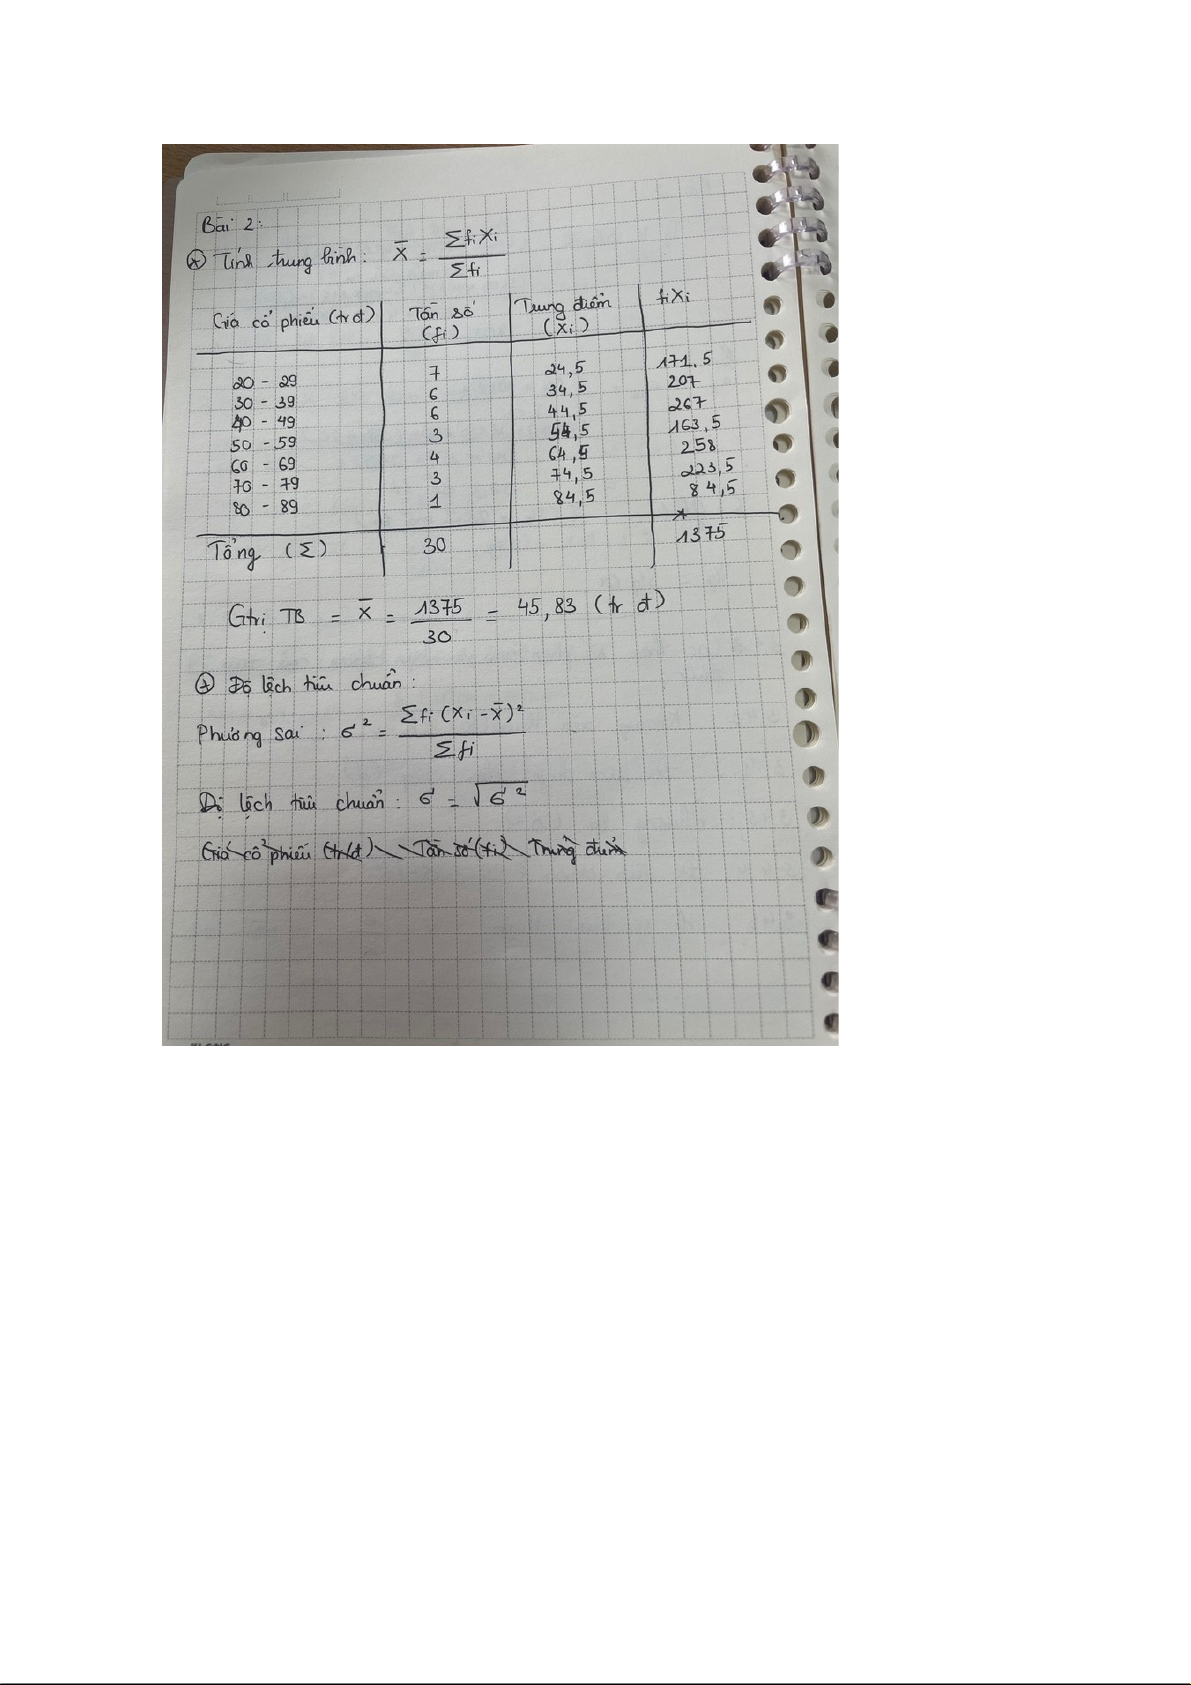 Bài 2:
* Tính trung bình: X̄ = Σfixi / Σfi
Giá cổ phiếu (tr đ) Tần số (fi) Trung điểm (xi) fixi
20 - 29 7 24,5 171,5
30 - 39 6 34,5 207
40 - 49 6 44,5 267
50 - 59 3 54,5 163,5
60 - 69 4 64,5 258
70 - 79 3 74,5 223,5
80 - 89 1 84,5 84,5
Tổng (Σ) 30 1375
Gtrị TB = X̄ = 1375 / 30 = 45,83 (tr đ)
Độ lệch tiêu chuẩn:
Phương sai: σ² = Σfi (xi - x̄)² / Σfi
Độ lệch tiêu chuẩn: σ = √σ²
Giá cổ phiếu (tr đ) Tần số (fi) Trung điểm